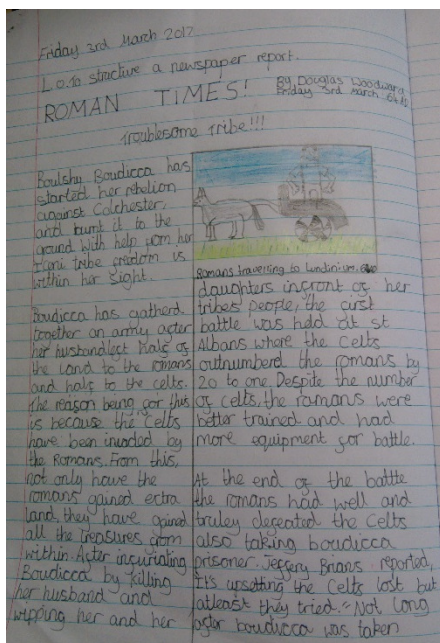 Friday 3rd March 2017
L.o.To structure a newspaper report.
ROMAN TIMES!
By Douglas Woodward
Friday 3rd March
Troublesome Tribe!!!
Boudicca has
started her rebelion
against Colchester,
and burnt it to the
ground with help from her
Iceni tribe freedom is
within her sight.
Boudicca has gatherd
together an army after
her husband left half of
the land to the romans
and half to the celts.
The reason being for this
is because the celts
have been invaded by
the Romans. From this,
not only have the
romans gained extra
land, they have gained
all the treasures from
within. After infuriating
Boudicca by killing
her husband and
wipping her and her
Romans travelling to Lundinium.
daughters infront of her
tribes people, the first
battle was held at st
Albans where the Celts
outnumberd the romans by
20 to one. Despite the number
of celts, the romans were
better trained and had
more equipment for battle.
At the end of the battle
the romans had well and
truley defeated the Celts
also taking boudicca
prisoner. Jeffery Brians reported,
It's upsetting the Celts lost but
atleast they tried." Not long
after boudicca was taken